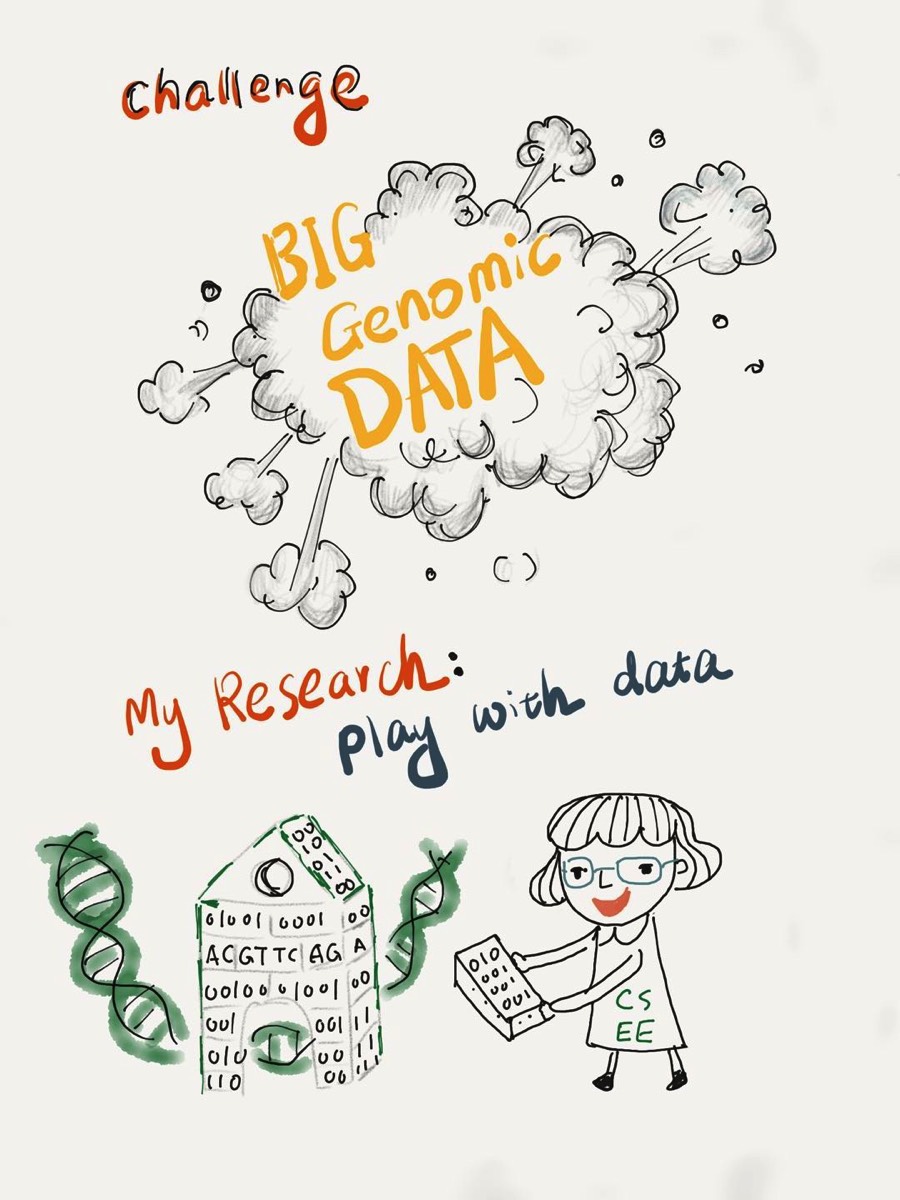 challenge
BIG
Genomic
DATA
My Research:
play with data
00
01
011
00
01001 0001 00
ACGTTC AG A
00100 01001 00
001 001 11
010 00 11
110 00 111
010
001
001
CS
EE